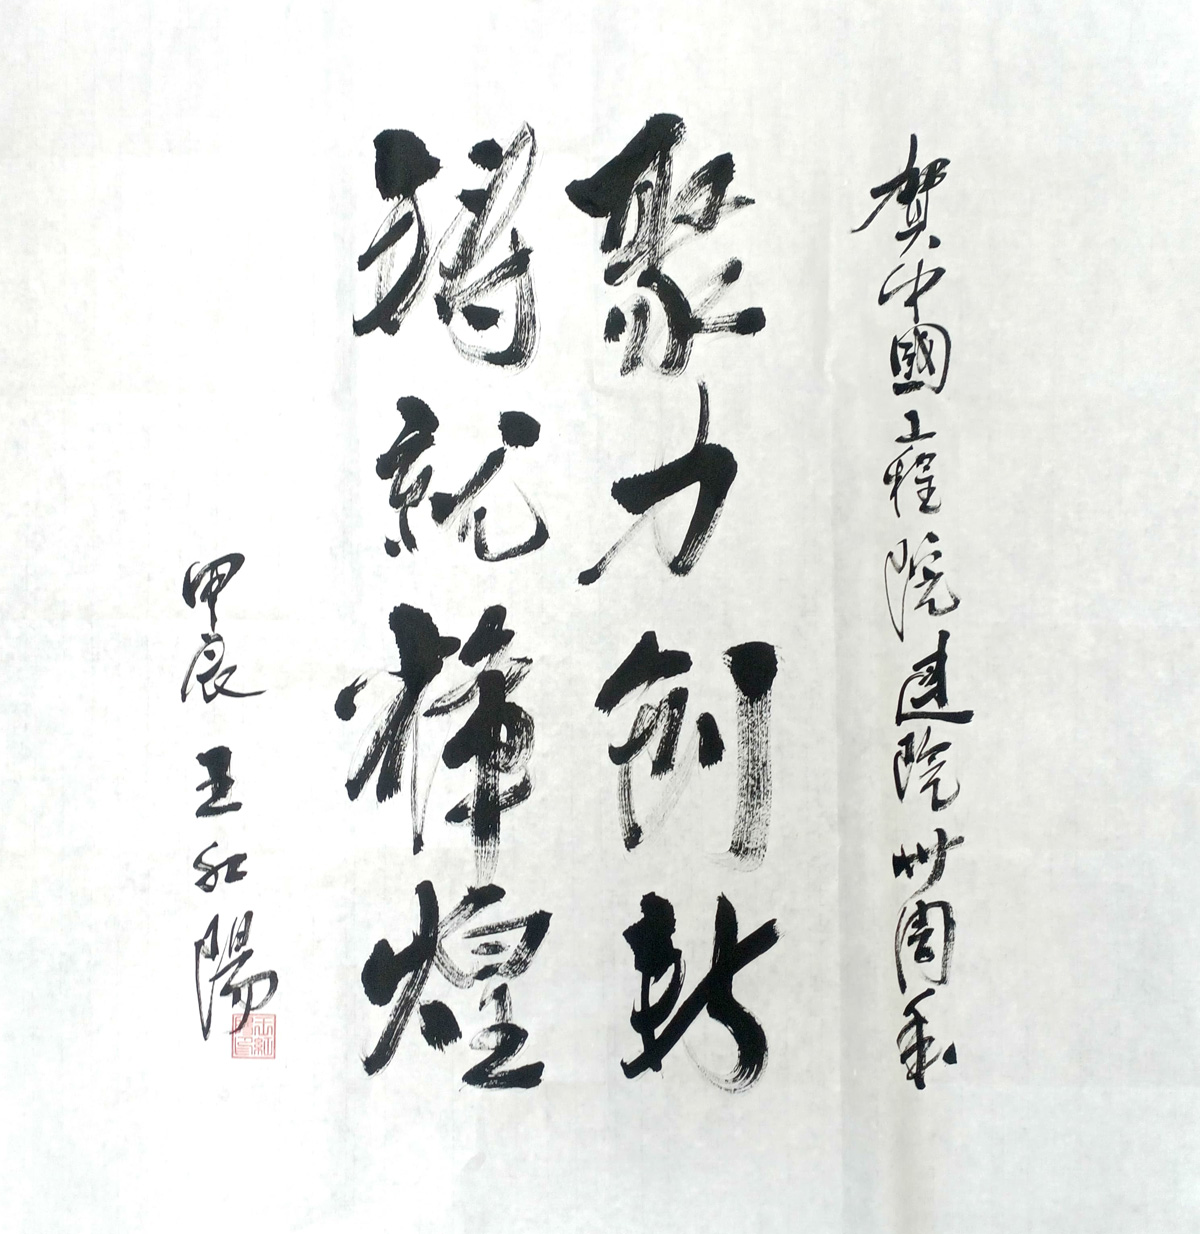 賀中國工程院建院卅周年
聚力創新
鑄就輝煌
甲辰 王紅陽